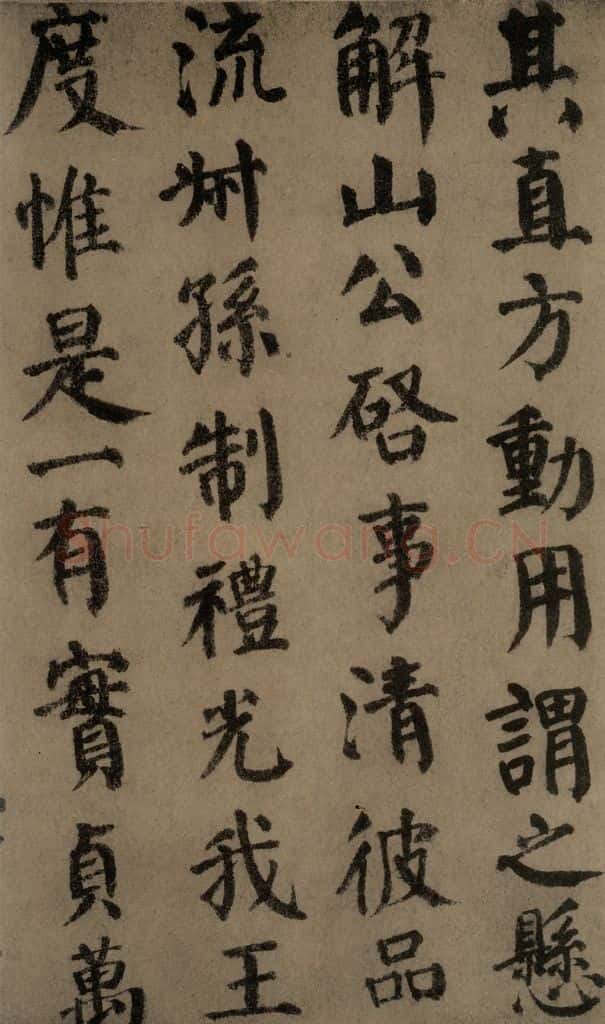 其直方動用謂之懸
解山公啓事清彼品
流叔孫制禮光我王
度惟是一有實貞萬
Shufawang.CN